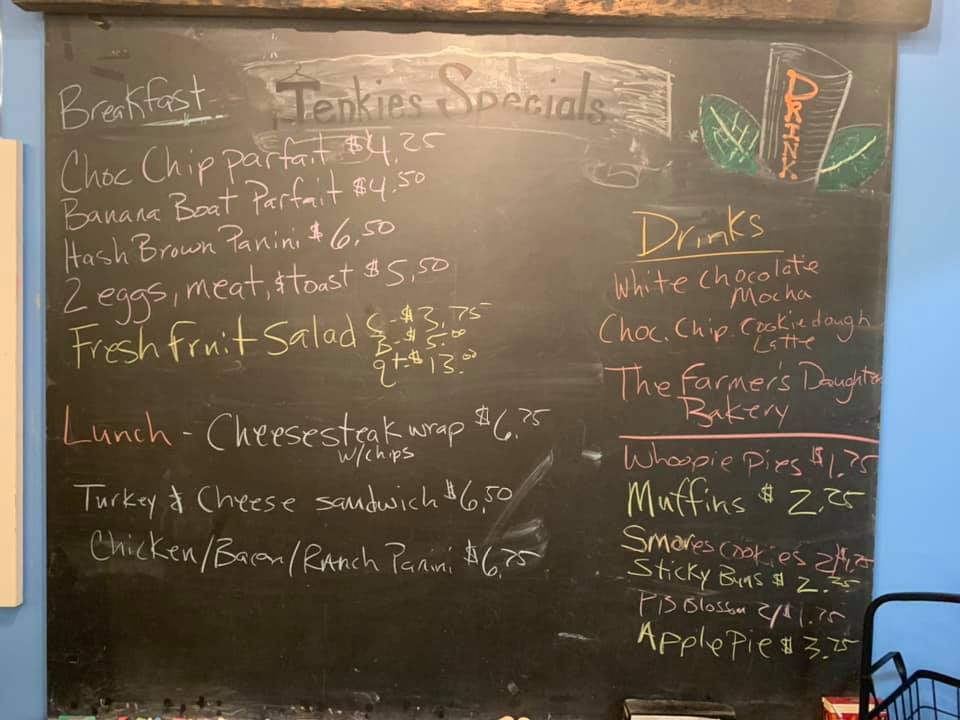 Jenkies Specials
Breakfast
Choc Chip Parfait $4.25
Banana Boat Parfait $4.50
Hash Brown Panini $6.50
2 eggs, meat, & toast $5.50
Fresh Fruit Salad S - $3.75
B - $5.00
qt - $13.00
Lunch - Cheesesteak wrap $6.75
w/chips
Turkey & Cheese sandwich $6.50
Chicken/Bacon/Ranch Panini $6.75
DRINK
Drinks
White Chocolate
Mocha
Choc. Chip. Cookie dough
Latte
The Farmer's Daughter
Bakery
Whoopie Pies $1.75
Muffins $2.25
Smores Cookies 2/$1.75
Sticky Buns $2.75
PB Blossom 2/$1.75
Apple Pie $3.75